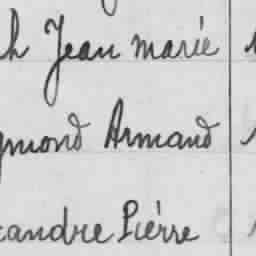 h Jean Marie
gmond Armand
xandre Pierre